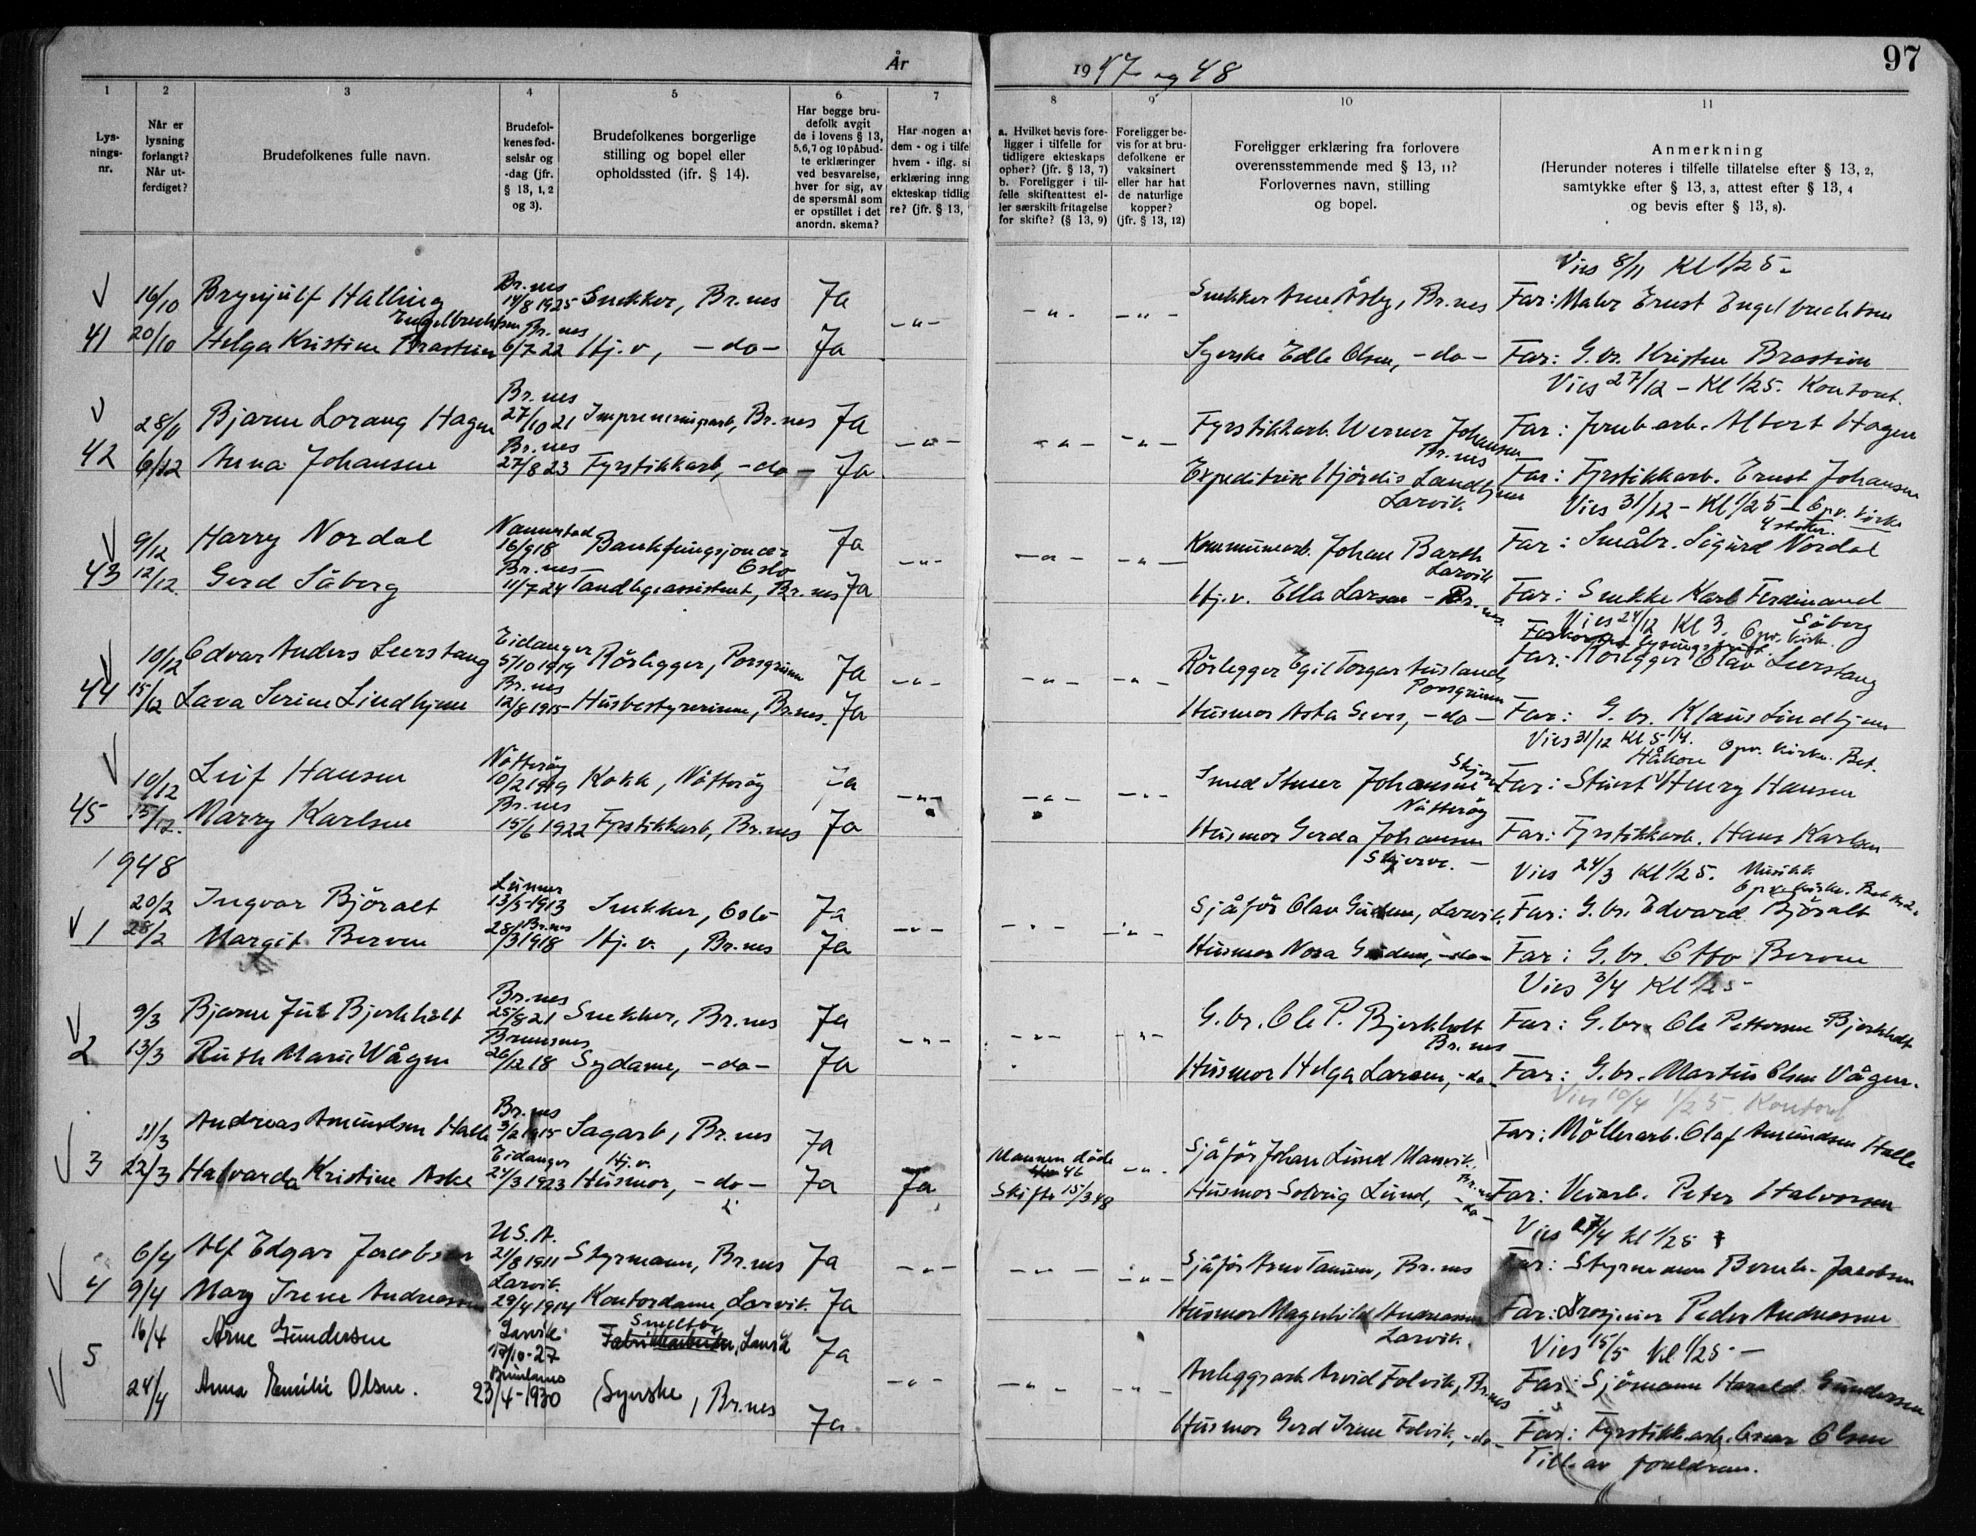 97
År 1947 og 48
1 2 3 4 5 6 7 8 9 10 11
Lys-
nings-
nr.
Når er
lysning
forlangt?
Når ut-
ferdiget?
Brudefolkenes fulle navn.
Brudefol-
kenes fød-
selsår og
-dag (jfr.
§ 13, 1, 2
og 3).
Brudefolkenes borgerlige
stilling og bopel eller
opholdssted (ifr. § 14).
Har begge bru-
defolk avgit
de i lovens § 13,
5,6,7 og 10 påbud-
te erklæringer
ved besvarelse,
hver for sig, av
de spørsmål som
er opstillet i det
anordn. skema?
Har nogen av
dem - og i tilfe
hvem - iflg. si
erklæring inng
ekteskap tidlig
re? (jfr. § 13,
a. Hvilket bevis fore-
ligger i tilfelle for
tidligere ekteskaps
ophør? (jfr. § 13, 7)
b. Foreligger i til-
felle skifteattest el-
ler særskilt fritagelse
for skifte? (§ 13, 9)
Foreligger be-
vis for at bru-
defolkene er
vaksinert
eller har hat
de naturlige
kopper?
(jfr. § 13, 12)
Foreligger erklæring fra forlovere
overensstemmende med § 13, 11?
Forlovernes navn, stilling
og bopel.
Anmerkning
(Herunder noteres i tilfelle tillatelse efter § 13, 2,
samtykke efter § 13, 3, attest efter § 13, 4
og bevis efter § 13, 8).
Vies 8/11 Kl 1/2 5.
16/10 Brynjulf Halling Engelbrechtsen Br.nes 14/8 1925 Snekker, Br.nes Ja Snekker Arne Åsby, Br.nes Far: Maler Ernst Engelbrechtsen
41 20/10 Helga Kristine Brastein Br.nes 6/7 22 Hj.v, -do- Ja -"- -"- -"- Syerske Edle Olsen, -do- Far: G.br. Kristen Brastein
Vies 27/12 - Kl 1/2 5. Kontoret.
28/11 Bjarne Lorang Hagen Br.nes 27/10 21 Impregneringsarb, Br.nes Ja Fyrstikkarb. Werner Johansen Br.nes Far: Jernb.arb. Albert Hagen
42 6/12 Anna Johansen Br.nes 27/8 23 Fyrstikkarb, -do- Ja -"- -"- -"- Expeditrise Hjördis Lindhjem Larvik. Far: Fyrstikkarb. Ernst Johansen
Vies 31/12 - Kl 1/2 5 - Opv. kirke
9/12 Harry Nordal Nannestad 16/9 18 Bankfungsjonær Oslo Ja Kommunearb. Johan Barth Larvik Far: Småbr. Sigurd Nordal
43 12/12. Gerd Såberg Br.nes 11/7 24 Tandlegeassistent, Br.nes Ja -"- -"- -"- Hj.v. Ella Larsen - Br.nes Far: Snekker Karl Ferdinand Såberg
Vies 24/12 Kl 3. Opv. kirk.
10/12 Edvar Anders Leerstang Eidanger 5/10 1919 Rörlegger, Porsgrunn Ja Rörlegger Egil Torgar Porsgrunn Far: Rörlegger Olav Leerstang
44 15/12 Lava Serine Lindhjem Br.nes 12/8 1915 Husbestyrerinne, Br.nes. Ja -"- -"- -"- Husmor Asta -do- Far: G.br. Klaus Lindhjem
Vies 31/12 Kl 5 1/4. Opv. kirke. Bet.
10/12 Leif Hansen Nötteröy 10/2 1919 Kokk, Nötteröy Ja Smed Johansen Nötteröy Far: Henry Hansen
45 15/12. Marry Karlsen Br.nes 15/6 1922 Fyrstikkarb, Br.nes Ja -"- -"- -"- Husmor Gerda Johansen Far: Fyrstikkarb. Hans Karlsen
1948
Vies 24/3 Kl 1/2 5. Musikk
20/2 Ingvar Björalt Lunner 13/5-1913 Snekker, Oslo Ja Sjåfør Olav Gudem, Larvik, Far: G.br. Edvard Björalt
1 28/2 Margit Berven Br.nes 28/3 1918 Hj.v. , Br.nes Ja -"- -"- -"- Husmor Nora Gudem, -do- Far: G.br. Otto Berven
Vies 3/4 Kl 1/2 5-
9/3 Bjarne Juul Bjerkholt Br.nes 25/8 21 Snekker, Br.nes Ja G.br. Ole P. Bjerkholt Br.nes Far: G.br. Ole Pettersen Bjerkholt
2 13/3 Ruth Marie Vågen Brunanes 26/12 18 Sydame, -do- Ja -"- -"- -"- Husmor Helga Larsen, -do- Far: G.br. Martin Olsen Vågen.
Vies 10/4 1/2 5. Kontoret
11/3 Andreas Amundsen Halle Br.nes 3/2 1915 Sagarb, Br.nes Ja Mannen døde 46 Sjåför Johan Lund Manvik. Far: Möllerarb. Olaf Amundsen Halle
3 22/3 Halvarda Kristine Aske Eidanger 24/3 1923 Hj.v. Husmor, -do- Ja Ja, Skifte 15/3 48 -"- Husmor Solveig Lund, -do- Far: Veiarb. Peter Halvorsen
Vies 27/4 Kl 1/2 5
6/4 Alf Edgar Jacobsen U.S.A. 21/8 1911 Styrmann, Br.nes Ja -"- -"- Sjåfør Arne Tanum, Br.nes Far: Styrmann Bernh. Jacobsen
4 9/4 Mary Irene Andreassen Larvik. 29/4 1914 Kontordame, Larvik. Ja -"- Husmor Magnhild Andreassen Larvik. Far: Drosjeeier Peder Andreassen
Vies 15/5 Kl 1/2 5 -
16/4 Arne Gundersen Larvik 17/10-27 Fabrikkarbeider, Larvik Ja Anleggsarb Arvid Folvik, Br.nes Far: Sjömann Harald Gundersen
5 24/4 Anna Emilie Olsen. Brunlanes 23/4-1930 Syerske, Br.nes Ja -"- -"- -"- Husmor Gerd Irene Folvik, -do- Far: Fyrstikkarb. Oscar Olsen
Till. av foreldrene.